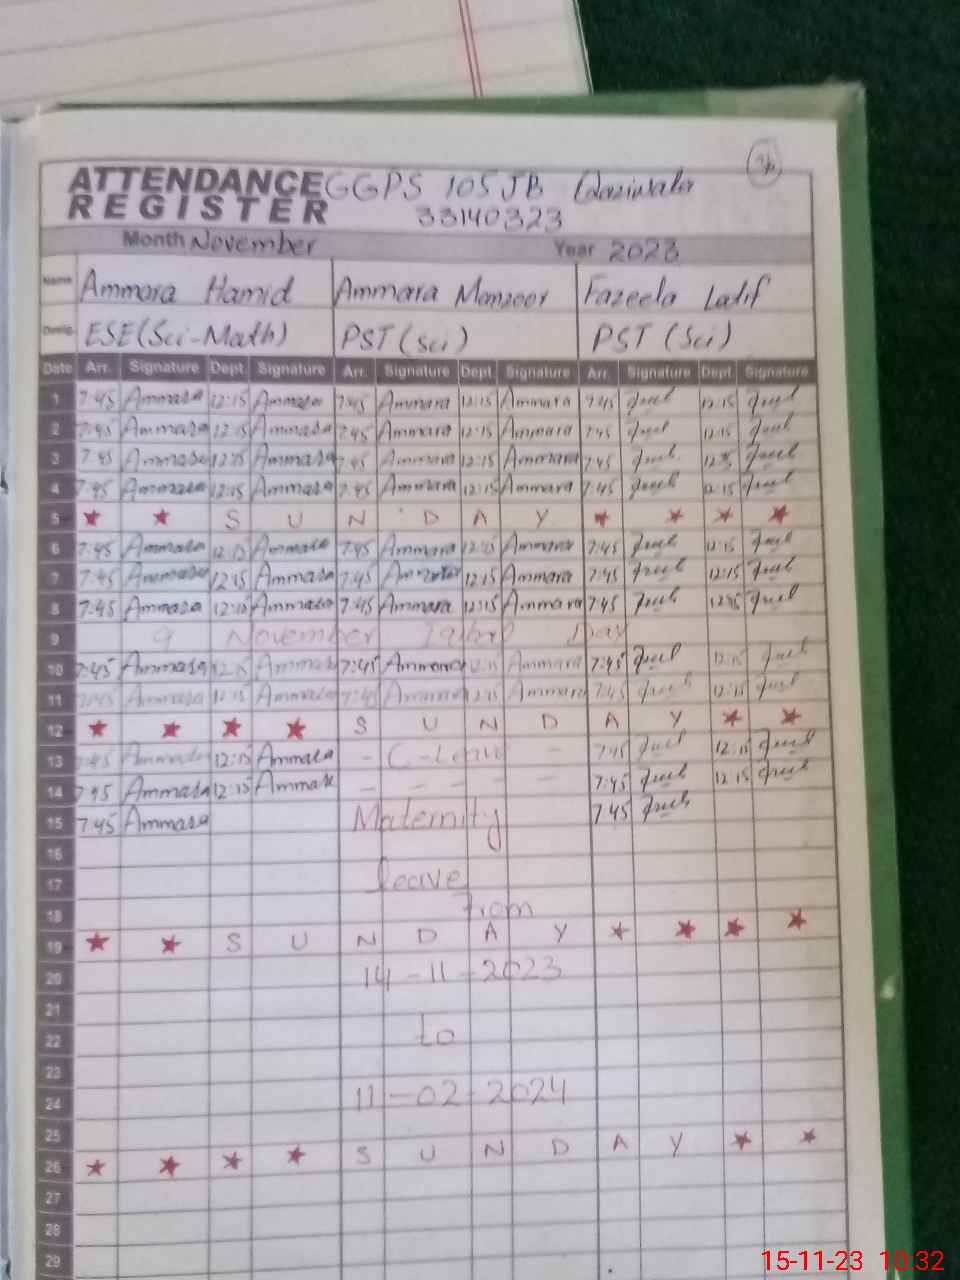 ATTENDANCE GGPS 105 JB
REGISTER 33140323
Month November Year 2023
Name Ammara Hamid Ammara Manzoor Fazeela Latif
Desig. ESE(Sci-Math) PST (Sci) PST (Sci)
Date Arr. Signature Dept. Signature Arr. Signature Dept. Signature Arr. Signature Dept. Signature
1 7:45 Ammara 12:15 Ammara 7:45 Ammara 12:15 Ammara 7:45 12:15
2 7:45 Ammara 12:15 Ammara 7:45 Ammara 12:15 Ammara 7:45 12:15
3 7:45 Ammara 12:15 Ammara 7:45 Ammara 12:15 Ammara 7:45 12:15
4 7:45 Ammara 12:15 Ammara 7:45 Ammara 12:15 Ammara 7:45 12:15
5 ★ ★ S U N D A Y ★ ★ ★ ★
6 7:45 Ammara 12:15 Ammara 7:45 Ammara 12:15 Ammara 7:45 12:15
7 7:45 Ammara 12:15 Ammara 7:45 12:15 Ammara 7:45 12:15
8 7:45 Ammara 12:15 Ammara 7:45 Ammara 12:15 Ammara 7:45 12:15
9 9 November Iqbal Day
10 7:45 Ammara 12:15 Ammara 7:45 Ammara 12:15 Ammara 7:45 12:15
11 7:45 Ammara 12:15 Ammara 7:45 Ammara 12:15 Ammara 7:45 12:15
12 ★ ★ ★ ★ S U N D A Y ★ ★
13 7:45 Ammara 12:15 Ammara - C-Leave - 7:45 12:15
14 7:45 Ammara 12:15 Ammara - - - - 7:45 12:15
15 7:45 Ammara Maternity 7:45
16
17 leave
18 from
19 ★ ★ S U N D A Y ★ ★ ★ ★
20 14-11-2023
21
22 to
23
24 11-02-2024
25
26 ★ ★ ★ ★ S U N D A Y ★ ★
27
28
29
15-11-23 10:32